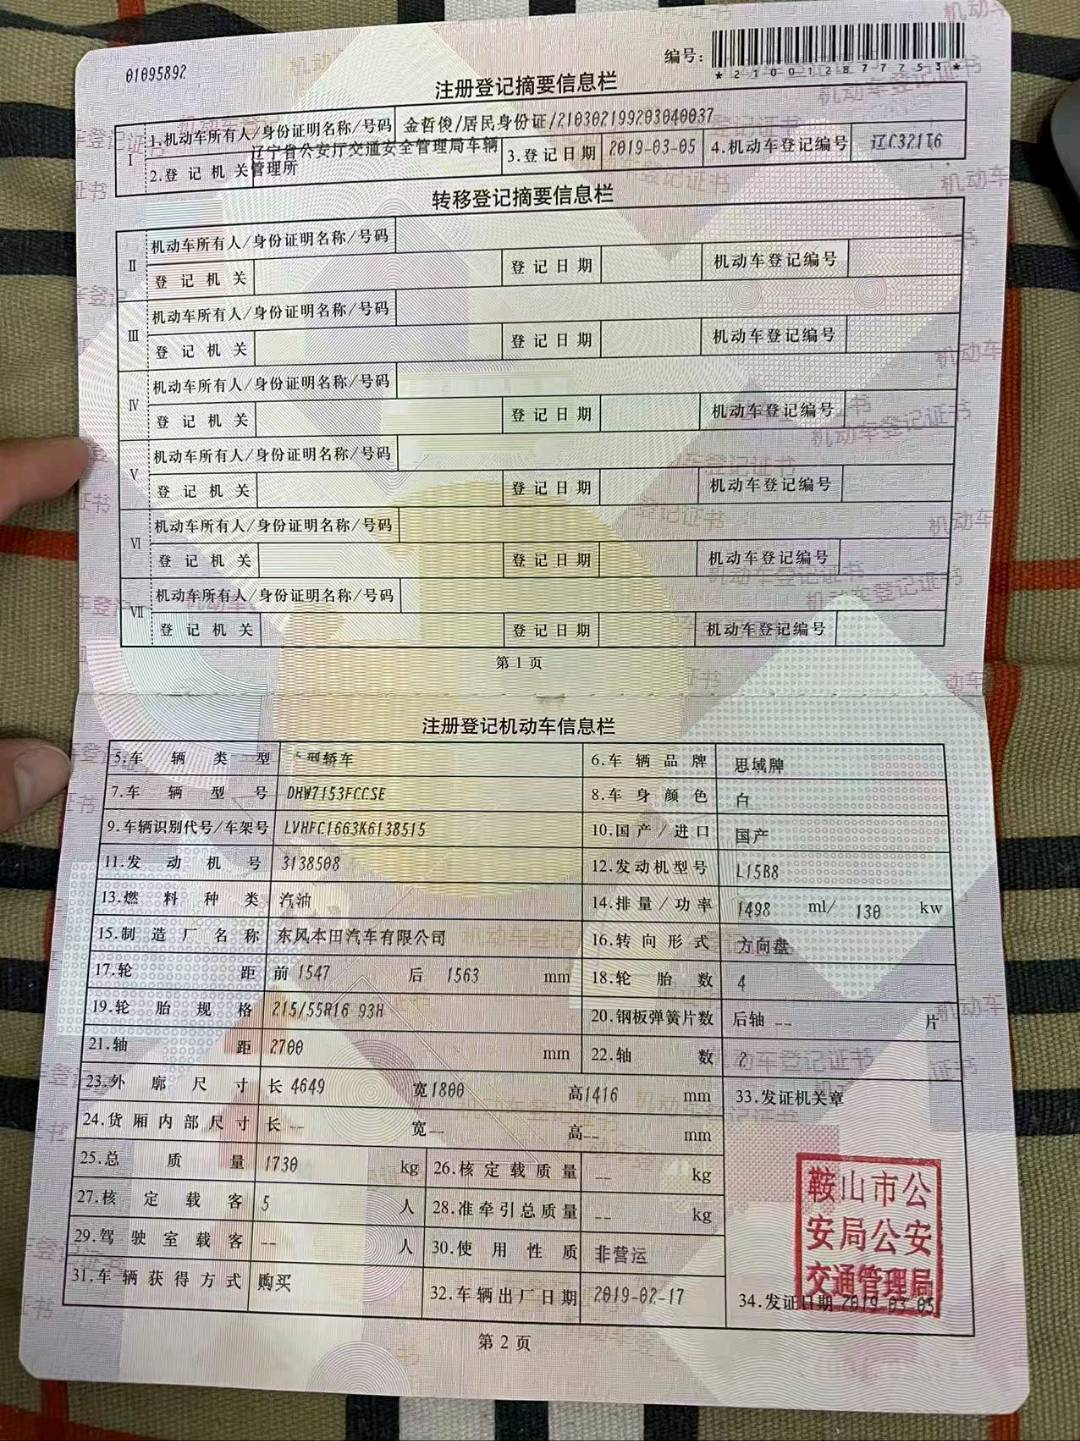 01095892
编号:
*210012877753*
注册登记摘要信息栏
I
1.机动车所有人/身份证明名称/号码 金哲俊/居民身份证/210302199203040037
2.登记机关 辽宁省公安厅交通安全管理局车辆管理所 3.登记日期 2019-03-05 4.机动车登记编号 辽C321T6
转移登记摘要信息栏
II 机动车所有人/身份证明名称/号码
登记机关 登记日期 机动车登记编号
III 机动车所有人/身份证明名称/号码
登记机关 登记日期 机动车登记编号
IV 机动车所有人/身份证明名称/号码
登记机关 登记日期 机动车登记编号
V 机动车所有人/身份证明名称/号码
登记机关 登记日期 机动车登记编号
VI 机动车所有人/身份证明名称/号码
登记机关 登记日期 机动车登记编号
VII 机动车所有人/身份证明名称/号码
登记机关 登记日期 机动车登记编号
第1页
注册登记机动车信息栏
5.车辆类型 型轿车 6.车辆品牌 思域牌
7.车辆型号 DHW7153FCCSE 8.车身颜色 白
9.车辆识别代号/车架号 LVHFC1663K6138515 10.国产/进口 国产
11.发动机号 3138508 12.发动机型号 L15B8
13.燃料种类 汽油 14.排量/功率 1498 ml/ 130 kw
15.制造厂名称 东风本田汽车有限公司 16.转向形式 方向盘
17.轮距 前 1547 后 1563 mm 18.轮胎数 4
19.轮胎规格 215/55R16 93H 20.钢板弹簧片数 后轴 -- 片
21.轴距 2700 mm 22.轴数 2
23.外廓尺寸 长 4649 宽1800 高1416 mm 33.发证机关章
24.货厢内部尺寸 长 -- 宽-- 高-- mm
25.总质量 1730 kg 26.核定载质量 -- kg
27.核定载客 5 人 28.准牵引总质量 -- kg
29.驾驶室载客 -- 人 30.使用性质 非营运
31.车辆获得方式 购买 32.车辆出厂日期 2019-02-17 34.发证日期 2019-03-05
鞍山市公
安局公安
交通管理局
第2页